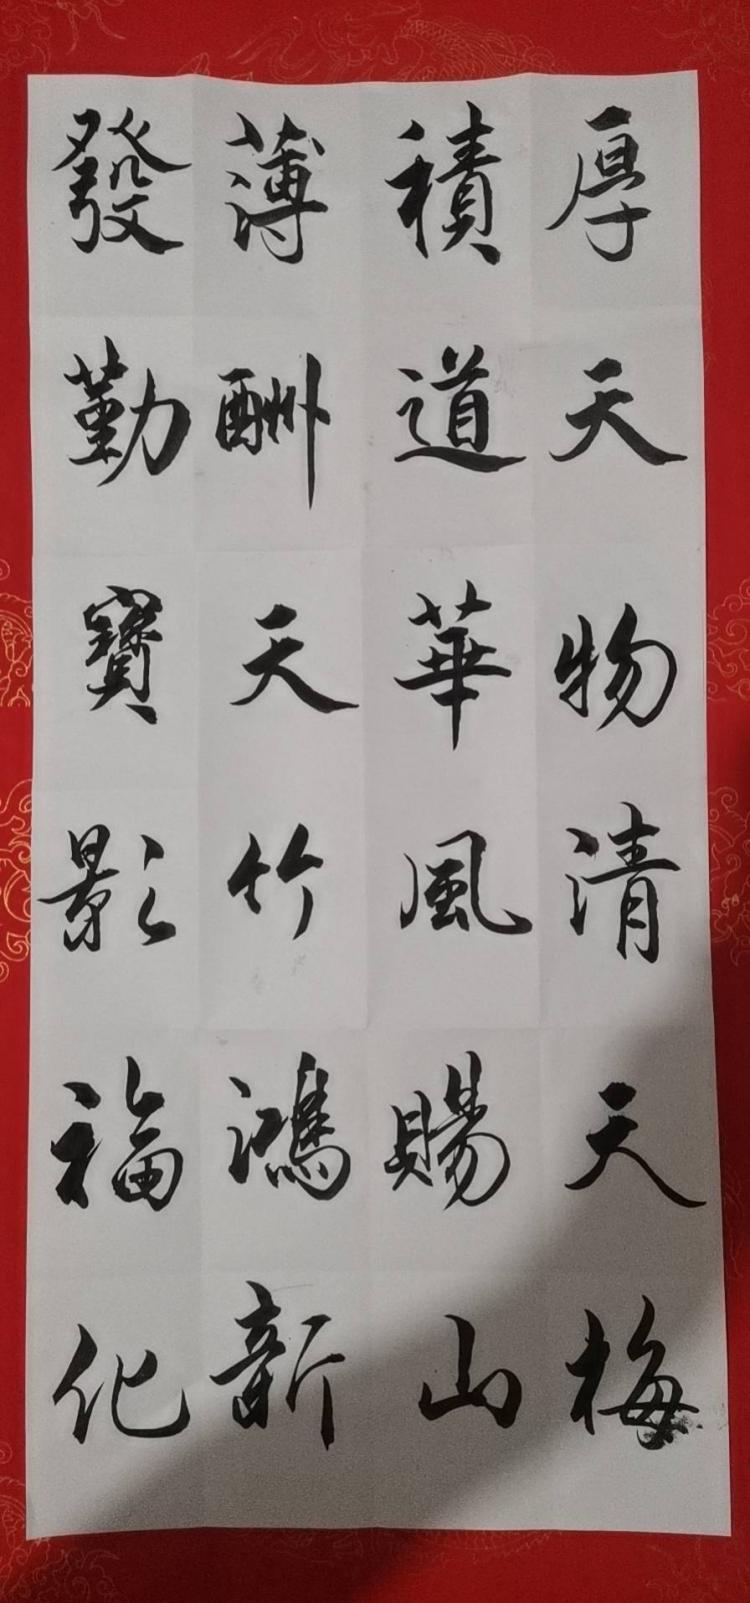 厚積薄發
天道酬勤
物華天寶
清風竹影
天賜鴻福
梅山新化